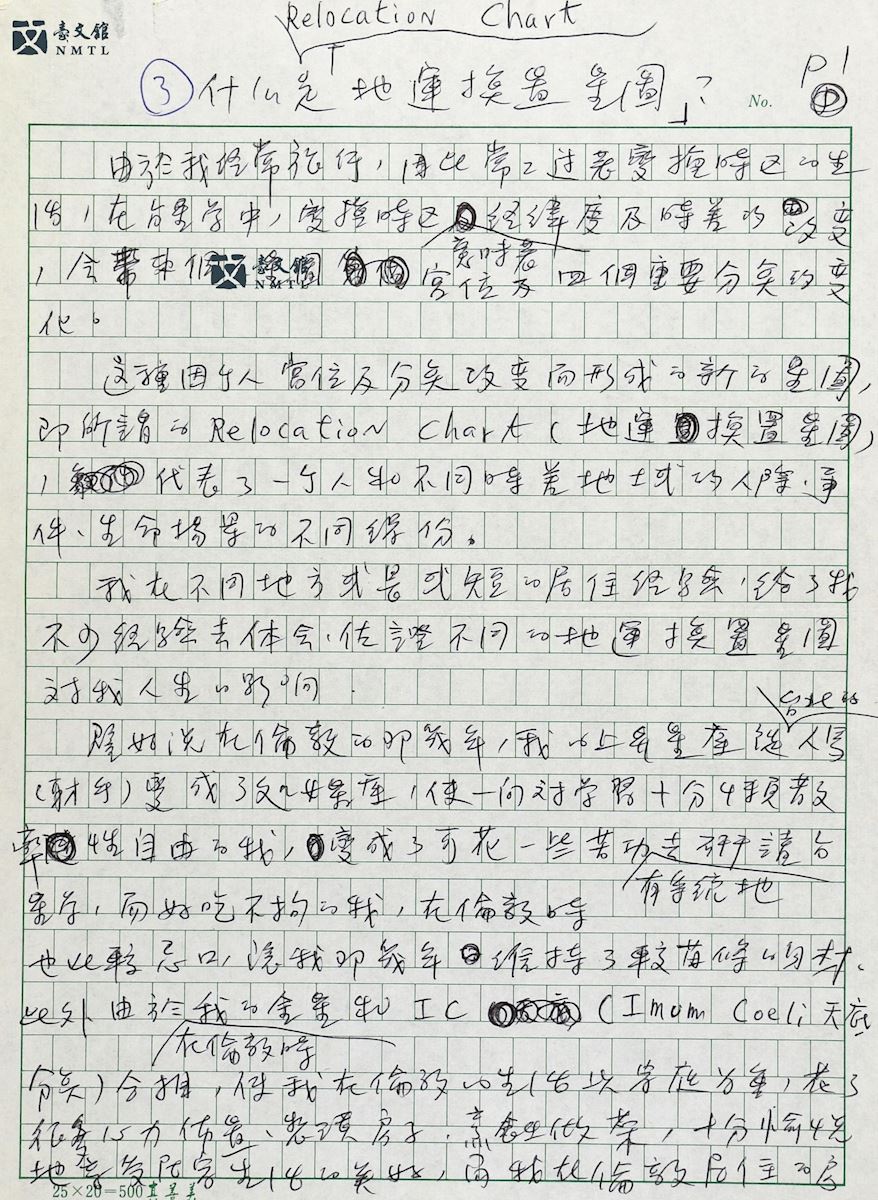 臺文館
NMTL
Relocation Chart
P1
③什么是「地運換置星圖」？
No.
由於我經常旅行，因此常常过着變換時区的生
活，在占星学中，變換時区經緯度及時差的改變
意味着
，会帶來個 宮位及四個重要分矣的變
臺文館
NMTL
化。
這種因个人宮位及分矣改變而形成的新的星圖，
即所謂的Relocation Chart（地運換置星圖）
，代表了一个人和不同時差地域的人際、事
件、生命場景的不同緣份。
我在不同地方或長或短的居住經驗，給了我
不少經驗去体会、佐證不同的地運換置星圖
对我人生的影响。
台北的
譬如说在倫敦的那幾年，我的上昇星座從人馬
（射手）變成了处女星座，使一向对学習十分鬆散
率性自由的我，變成了可花一些苦功去研讀占
有系統地
星学，而好吃不拘的我，在倫敦時
也比較忌口，讓我那幾年維持了較苗條的身材。
此外由於我的金星和IC（Imum Coeli天底
在倫敦時
分矣）合相，使我在倫敦的生活以家庭为重，花了
很多心力佈置、整理房子、烹飪做菜，十分愉快
地享受居家生活的美好，而我在倫敦居住的房
25×20=500 真善美